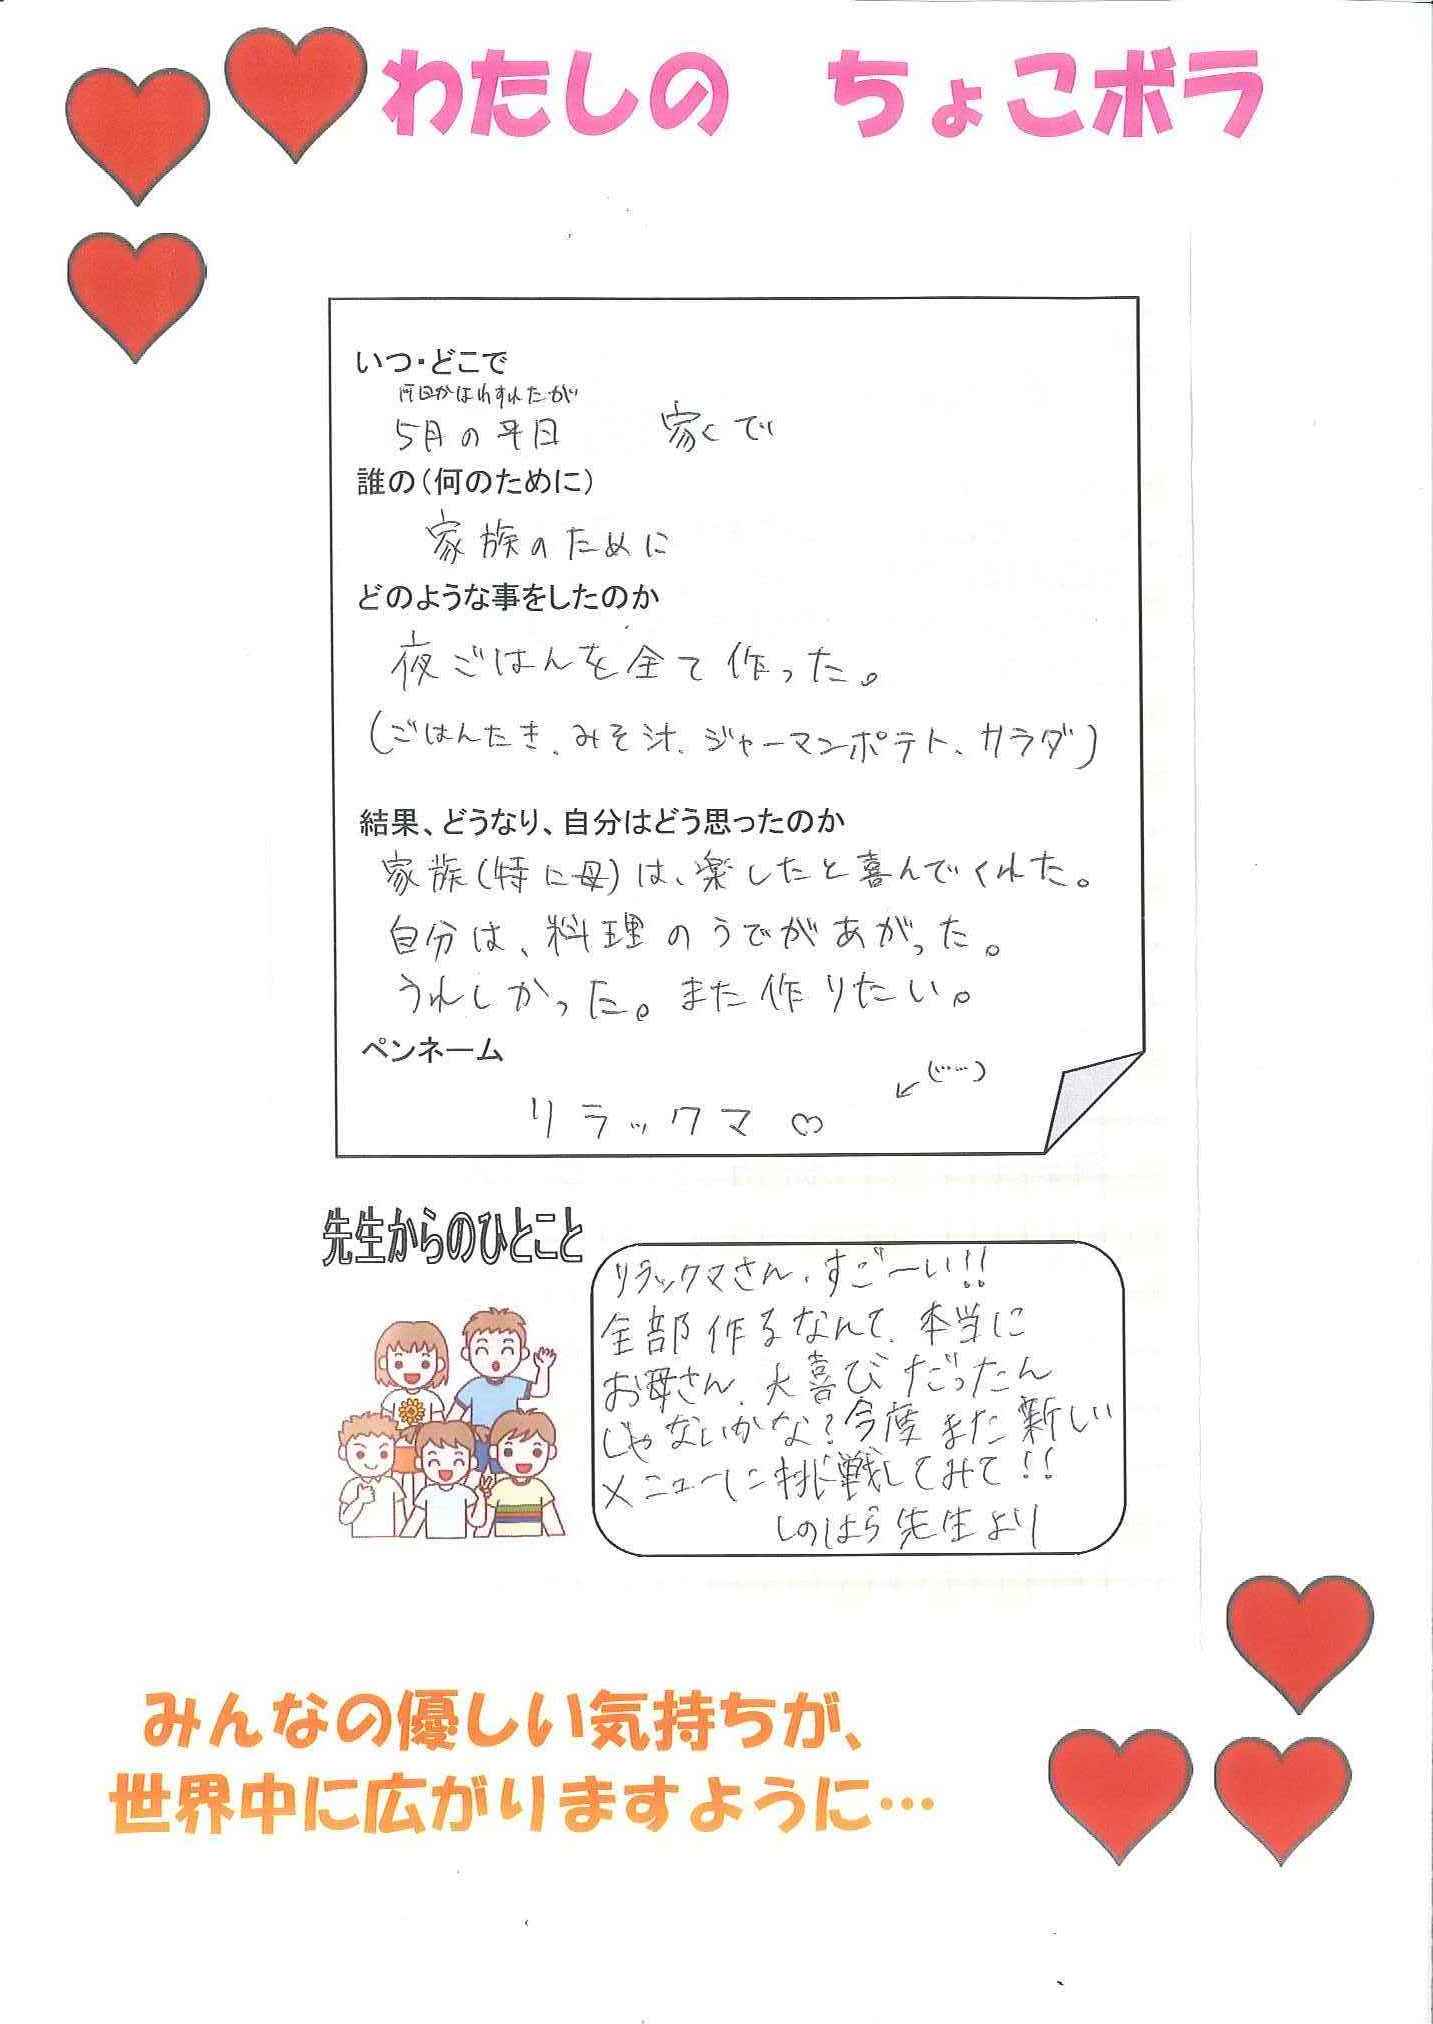 わたしの　ちょこボラ
いつ・どこで
何日かはわすれたが
5月の平日　家で
誰の（何のために）
家族のために
どのような事をしたのか
夜ごはんを全て作った。
（ごはんたき、みそ汁、ジャーマンポテト、サラダ）
結果、どうなり、自分はどう思ったのか
家族（特に母）は、楽したと喜んでくれた。
自分は、料理のうでがあがった。
うれしかった。また作りたい。
ペンネーム
（……）
リラックマ♡
先生からのひとこと
リラックマさん、すご〜い!!
全部作るなんて、本当に
お母さん、大喜びだったん
じゃないかな？今度また新しい
メニューに挑戦してみて!!
しのはら先生より
みんなの優しい気持ちが、
世界中に広がりますように…